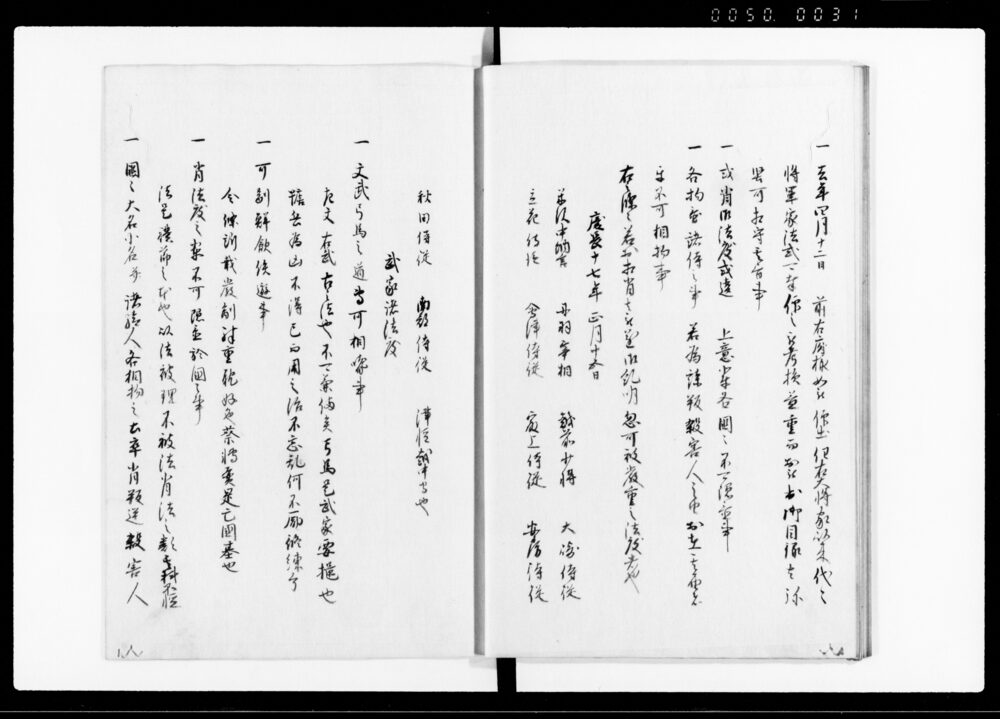 0050. 0031
一 去年四月十二日 前右府様如被仰出従右大将家以来代々
将軍家法式可奉仰之被考損益重而於被出御目録者弥
堅可相守其旨事
一 或背御法度或違 上意輩各国々不可隠置事
一 各拘置諸侍之事 若為叛逆殺害人之由於在其届者
互不可相拘事
右條々若於相背者被遂御糺明忽可被処厳重之法度者也
慶長十七年正月十五日
米沢中納言 丹羽宰相 越前少将 大崎侍従
立花侍従 会津侍従 最上侍従 安房侍従
秋田侍従 南部侍従 津軽越中守也
武家諸法度
一 文武弓馬之道専可相嗜事
左文右武古法也不可不兼備矣弓馬是武家要枢也
號兵為凶不得已而用之治不忘乱何不励修練乎
一 可制群飲佚遊事
令條所載厳制殊重耽好色業博奕是亡国基也
一 背法度之輩不可隠置於国々事
法是礼節之本也以法破理不破法背法之類其科不軽
一 国々大名小名并諸給人各相拘之士卒背叛逆殺害人